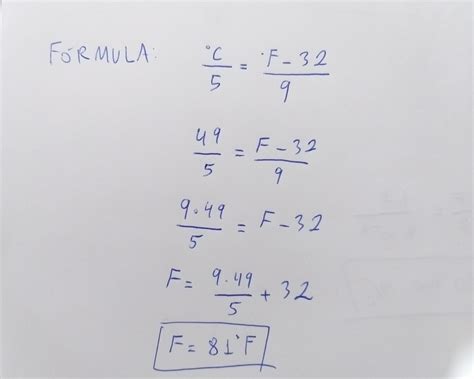 FORMULA: °C/5 = °F - 32/9
49/5 = F - 32/9
9.49/5 = F - 32
F = 9.49/5 + 32
F = 81°F